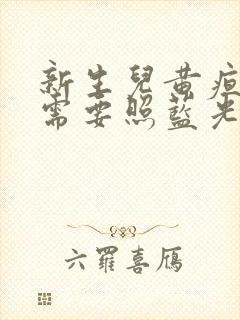 新生兒黃疸
需要照藍光
六羅喜鴈